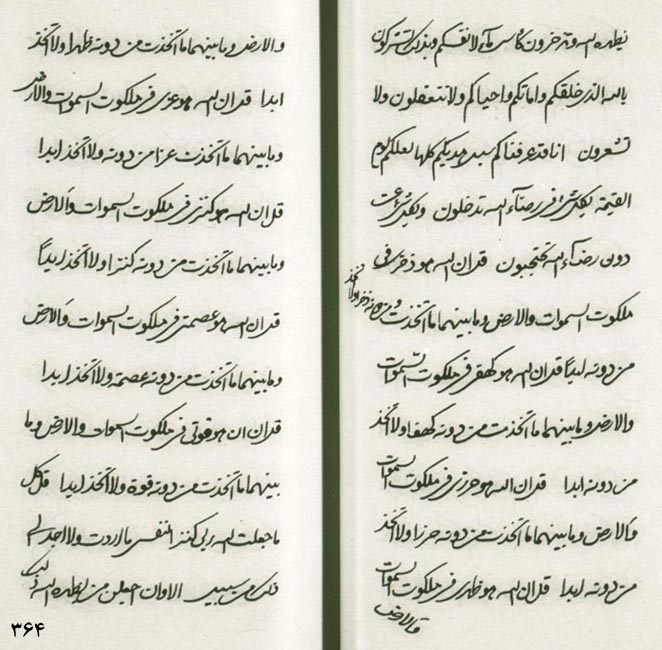 يظهره الله وتدخرون كأس مآء لانفسكم وبذلك لتشركون
بالله الذي خلقكم واماتكم واحياكم ولا تتعقلون ولا
تشعرون انا قد عرفناكم سبل مهديكم كلها لعلكم يوم
القيمة بكل شيء في رضآء الله تدخلون وبكل شيء عن
دون رضآء الله تحتجبون قل ان الله هو ذخري في
ملكوت السموات والارض وما بينهما ما اتخذت من دونه ذخرا ولا اتخذ
من دونه ابدا قل ان الله هو كهفي في ملكوت السموات
والارض وما بينهما ما اتخذت من دونه كهفا ولا اتخذ
من دونه ابدا قل ان الله هو حرزي في ملكوت السموات
والارض وما بينهما ما اتخذت من دونه حرزا ولا اتخذ
من دونه ابدا قل ان الله هو ظهري في ملكوت السموات
والارض
والارض وما بينهما ما اتخذت من دونه ظهرا ولا اتخذ
ابدا قل ان الله هو عزي في ملكوت السموات والارض
وما بينهما ما اتخذت عزا من دونه ولا اتخذ ابدا
قل ان الله هو كنزي في ملكوت السموات والارض
وما بينهما ما اتخذت من دونه كنزا ولا اتخذ ابدا
قل ان الله هو عصمتي في ملكوت السموات والارض
وما بينهما ما اتخذت من دونه عصمة ولا اتخذ ابدا
قل ان الله هو قوتي في ملكوت السموات والارض وما
بينهما ما اتخذت من دونه قوة ولا اتخذ ابدا قل كل
ما جعلت الله ربي كنز النفسي ما اردت ولا اجد لي
ذلك من سبيل الا وان اجعلن من يظهره الله
٣۶۴